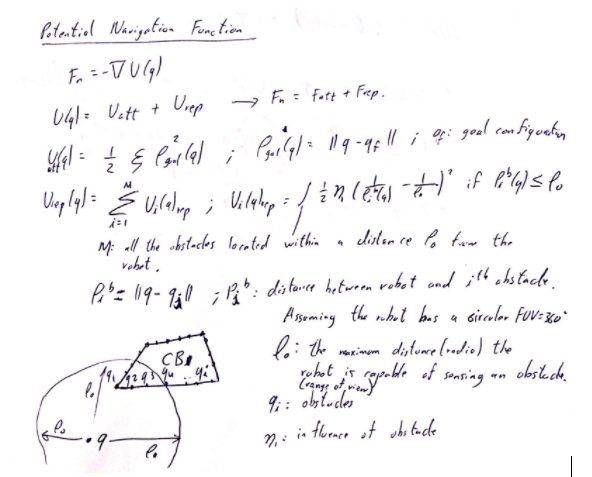 Potential Navigation Function
Fn = -∇U(q)
U(q) = Uatt + Urep → Fn = Fatt + Frep.
Uatt(q) = 1/2 ξ ρ²goal(q) ; ρgoal(q) = ||q - qf|| ; qf: goal configuration
Urep(q) = Σ_{i=1}^{M} Ui(q)rep ; Ui(q)rep = { 1/2 ηi (1/ρi^b(q) - 1/ρo)² if ρi^b(q) ≤ ρo
M: all the obstacles located within a distance ρo from the
robot.
ρi^b = ||q - qi|| ; ρi^b: distance between robot and ith obstacle.
Assuming the robot has a circular FOV=360°
ρo: the maximum distance (radio) the
robot is capable of sensing an obstacle.
(range of view)
qi: obstacles
ηi: influence of obstacle
CB
q1 q2 q3 q4 .. qi
ρo
ρo
• q
ρo